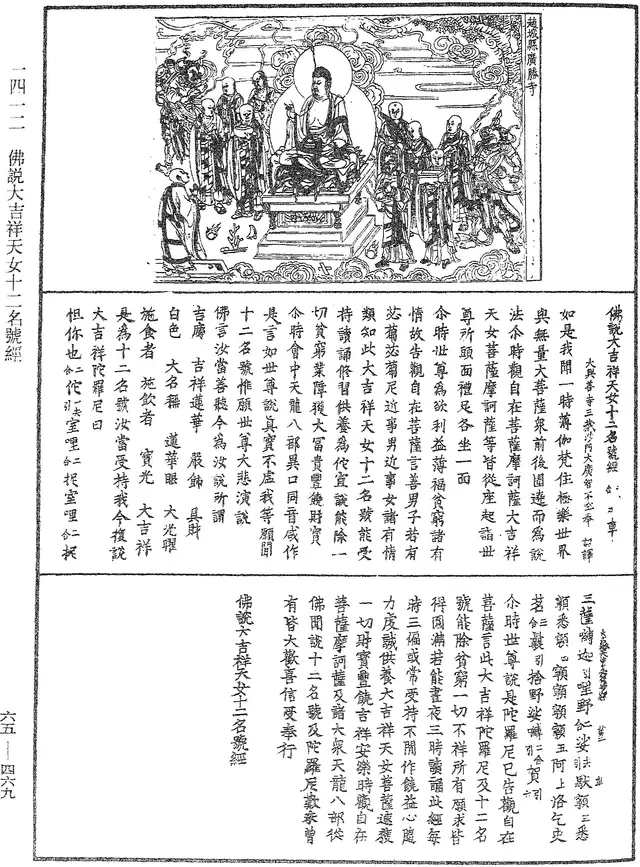 趙城縣廣勝寺
一四一二　佛説大吉祥天女十二名號經
佛說大吉祥天女十二名號經
大興善寺三藏沙門大廣智不空奉　詔譯
如是我聞一時薄伽梵住極樂世界
與無量大菩薩衆前後圍遶而爲說
法尒時觀自在菩薩摩訶薩大吉祥
天女菩薩摩訶薩等皆從座起詣世
尊所頭面禮足各坐一面
尒時世尊爲欲利益薄福貧窮諸有
情故告觀自在菩薩言善男子若有
苾蒭苾蒭尼近事男近事女諸有情
類知此大吉祥天女十二名號能受
持讀誦修習供養爲佗宣說能除一
切貧窮業障獲大冨貴豐饒財寶
尒時會中天龍八部異口同音咸作
是言如世尊說真實不虛我等願聞
十二名號惟願世尊大悲演說
佛言汝當善聽今爲汝說所謂
吉慶　吉祥蓮華　嚴飾　具財
白色　大名稱　蓮華眼　大光曜
施食者　施飲者　寶光　大吉祥
是爲十二名號汝當受持我今復說
大吉祥陀羅尼曰
怛你也二合佗一去引室哩二合抳室哩二合抳
三薩嚩迦引哩野二合娑去馱額三悉
額悉額四額額額額五阿上洛乞史
茗三合曩引捨野娑嚩二合引賀引六
尒時世尊說是陀羅尼已告觀自在
菩薩言此大吉祥陀羅尼及十二名
號能除貧窮一切不祥所有願求皆
得圓滿若能晝夜三時讀誦此經每
時三徧或常受持不閒作饒益心隨
力虔誠供養大吉祥天女菩薩速獲
一切財寶豐饒吉祥安樂時觀自在
菩薩摩訶薩及諸大衆天龍八部從
佛聞說十二名號及陀羅尼歎未曾
有皆大歡喜信受奉行
佛說大吉祥天女十二名號經
六五—四六九